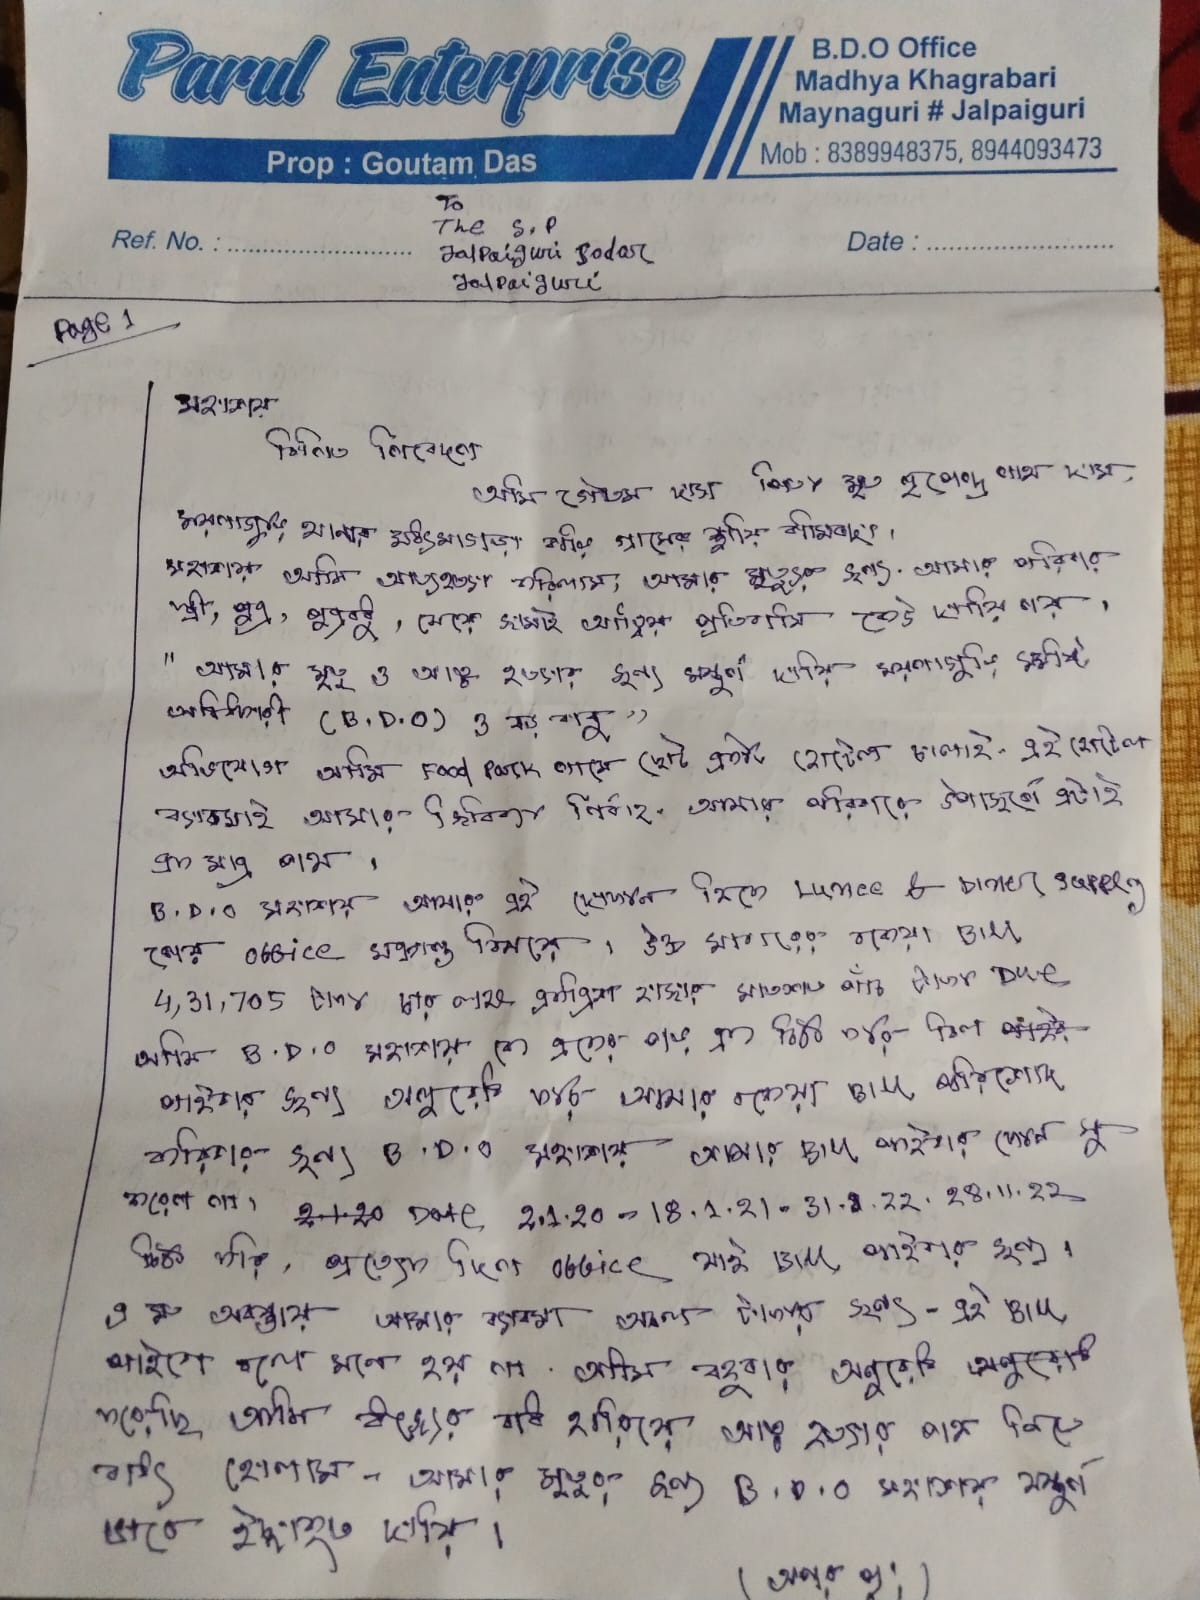 Parul Enterprise
Prop : Goutam Das
B.D.O Office
Madhya Khagrabari
Maynaguri # Jalpaiguri
Mob : 8389948375, 8944093473
Ref. No. :
To
The S.P
Jalpaiguri Sodar
Jalpaiguri
Date :
Page 1
মহাশয়
বিনিত নিবেদন
আমি গৌতম দাস পিতা মৃত নৃপেন্দ্র নাথ দাস,
ময়নাগুড়ি থানার গ্রামের স্থায়ি বাসিন্দা।
মহাশয় আমি আত্মহত্যা করিলাম, আমার মৃত্যুর জন্য. আমার পরিবার
স্ত্রী, পুত্র, পুত্রবধু, মেয়ে জামাই আত্মিয় প্রতিবাসি কেউ দায়ি নয়।
" আমার মৃত্যু ও আত্ম হত্যার জন্য সম্পুর্ণ দায়ি ময়নাগুড়ি সমষ্টি
অধিকারী (B.D.O) ও বড় বাবু "
অভিযোগ আমি Food Park নামে ছোট একটি হোটেল চালাই. এই হোটেল
ব্যাবসাই আমার নির্বাহ. আমার পরিবারে এটাই
এক মাত্র কাজ।
B.D.O মহাশয় আমার এই দোকান থেকে Lunce & Diner Supply
নেয় Office সংক্রান্ত বিষয়ে। উক্ত খাবারের বকেয়া Bill
4,31,705 টাকা চার লাখ একত্রিশ হাজার সাতশত পাঁচ টাকা Due
আমি B.D.O মহাশয় কে একের পর এক চিঠি করি বিল
পাইবার জন্য অনুরোধ করি আমার বকেয়া Bill পরিশোধ
করিবার জন্য B.D.O মহাশয় আমার Bill পাইবার
করেন না। 2.1.20 Date 2.1.20 - 18.1.21 - 31.1.22. 28.11.22
চিঠি করি, প্রত্যেক দিন Office যাই Bill পাইবার জন্য।
এ মত অবস্থায় আমার ব্যাবসা অচল টাকার জন্য - এই Bill
পাইবো বলে মনে হয় না. আমি বহুবার অনুরোধ অনুরোধ
করেছি আমি হারিয়ে আত্ম হত্যার পথ নিতে
বাধ্য হোলাম - আমার মৃত্যুর জন্য B.D.O মহাশয় সম্পুর্ণ
ভাবে ইচ্ছাকৃত দায়ি।
(অপর পৃঃ)